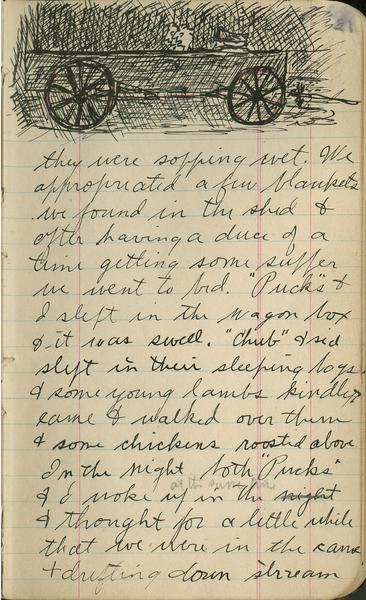 21
they were sopping wet. We
appropriated a few blankets
we found in the shed &
after having a duce of a
time getting some supper
we went to bed. "Pucks" &
I slept in the wagon box
& it was swell. "Chub" & sid
slept in their sleeping bags
& some young lambs kindly
came & walked over them
& some chickens roosted above
In the night both "Pucks"
at the same time
& I woke up in the night
& thought for a little while
that we were in the canoe
& drifting down stream